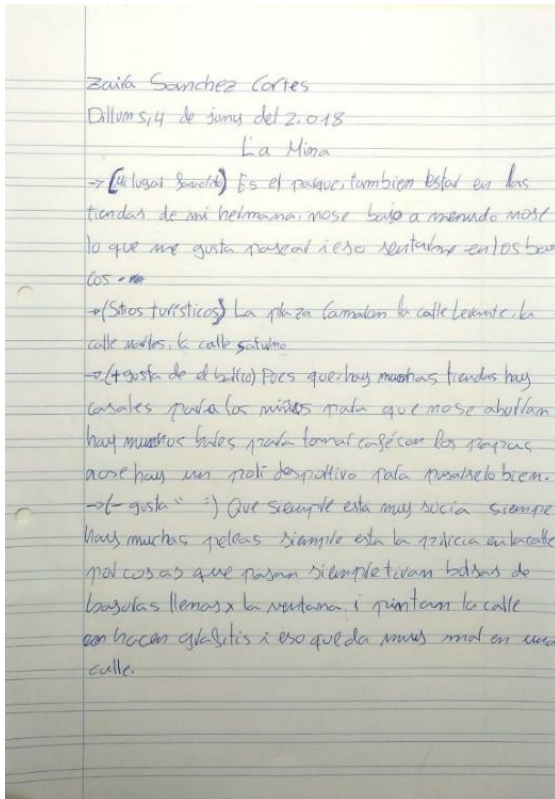 Zaira Sanchez Cortes
Dillums, 4 de juny del 2.018
La Mina
→ (Mi lugar favorito) Es el parque, tambien estar en las
tiendas de mi hermana, nose bajo a menudo nose
lo que me gusta pasear i eso sentarme en los ban
cos.
→ (Sitios turísticos) La plaza Camaron la calle Levante, la
calle martes, la calle saturno
→ (+ gusta de el barrio) Pues que hay munchas tiendas hay
casales para los niños para que nose aburran
hay munchos bares para tomar café con los papas
nose hay un poli deportivo para pasarselo bien.
→ (- gusta " =) Que siempre esta muy sucia siempre
hay muchas peleas siempre esta la policia en la calle
por cosas que pasan siempre tiran bolsas de
basuras llenas x la ventana i pintan la calle
hacen grafitis i eso queda muy mal en una
calle.